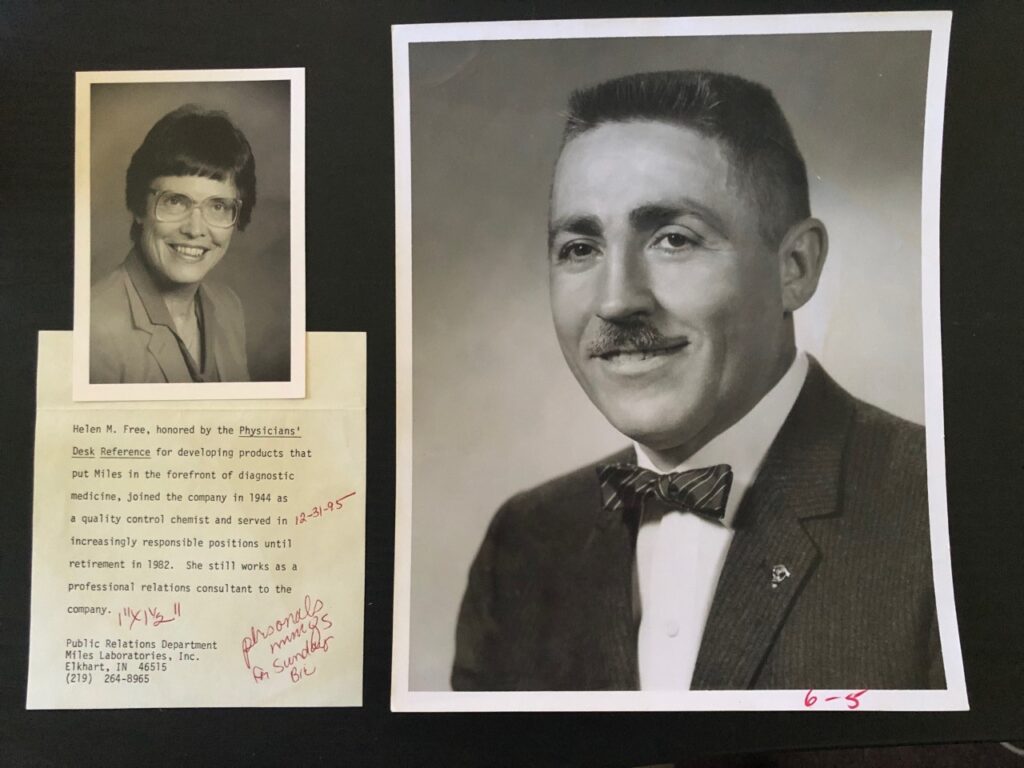 Helen M. Free, honored by the Physicians'
Desk Reference for developing products that
put Miles in the forefront of diagnostic
medicine, joined the company in 1944 as
a quality control chemist and served in
12-31-95
increasingly responsible positions until
retirement in 1982. She still works as a
professional relations consultant to the
company.
1"X1½"
Public Relations Department
Miles Laboratories, Inc.
Elkhart, IN 46515
(219) 264-8965
personals
mmgs
for Sunday
Biz
6-5